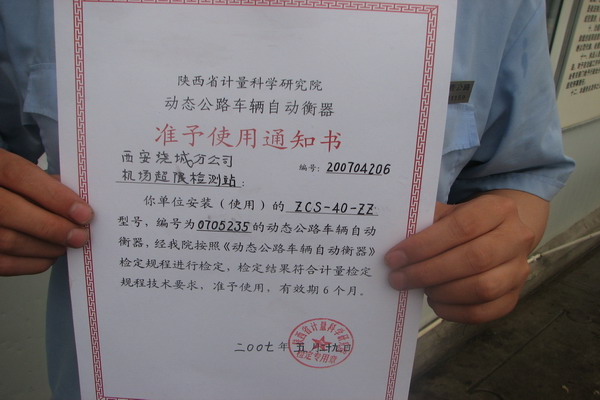 陕西省计量科学研究院
动态公路车辆自动衡器
准予使用通知书
西安绕城分公司
编号：200704206
机场超限检测站：
你单位安装（使用）的 ZCS-40-ZZ
型号，编号为0705235的动态公路车辆自动
衡器，经我院按照《动态公路车辆自动衡器》
检定规程进行检定，检定结果符合计量检定
规程技术要求，准予使用。有效期6个月。
陕西省计量科学研究院
检定专用章
二〇〇七年 五月十九日